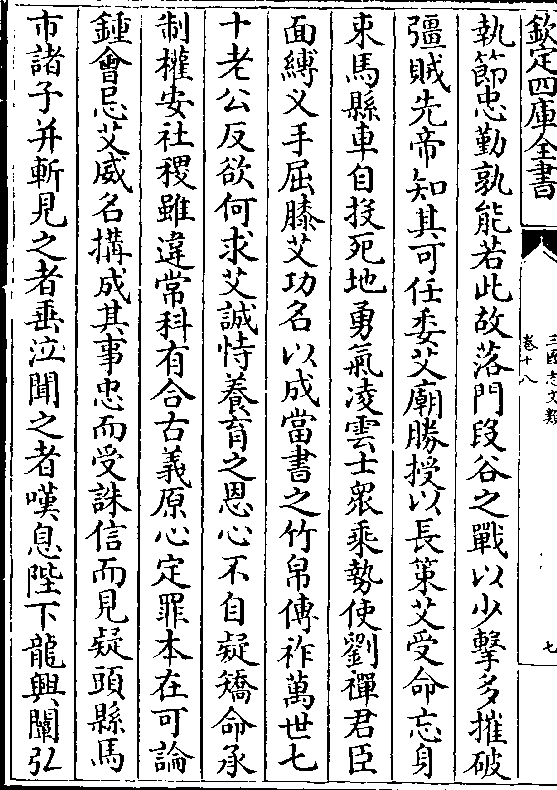 欽定四庫全書
三國志文類
卷十八
七
執節忠勤孰能若此故落門段谷之戰以少擊多摧破
彊賊先帝知其可任委艾廟勝授以長策艾受命忘身
束馬縣車自投死地勇氣凌雲士衆乘勢使劉禪君臣
面縛乂手屈膝艾功名以成當書之竹帛傳祚萬世七
十老公反欲何求艾誠恃養育之恩心不自疑矯命承
制權安社稷雖違常科有合古義原心定罪本在可論
鍾會忌艾威名搆成其事忠而受誅信而見疑頭縣馬
市諸子并斬見之者垂泣聞之者嘆息陛下龍興闡弘